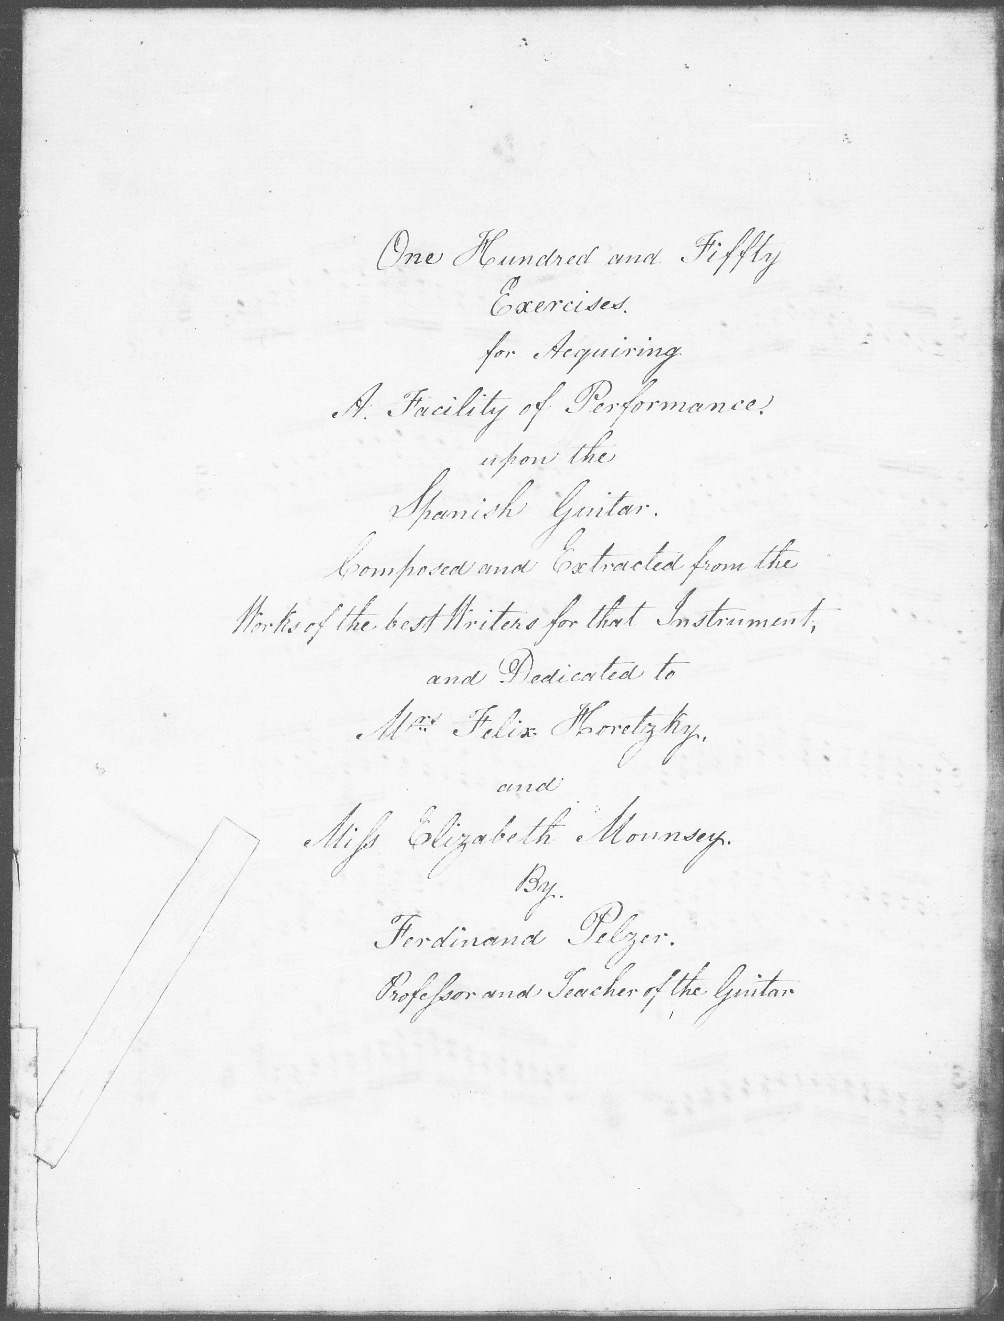 One Hundred and Fiffty
Exercises.
for Acquiring
A. Facility of Performance.
upon the
Spanish Guitar.
Composed and Extracted from the
Works of the best Writers for that Instrument,
and Dedicated to
Mrs Felix Horetzky.
and
Miſs Elizabeth Mounsey.
By.
Ferdinand Pelzer.
Profeſsor and Teacher of the Guitar